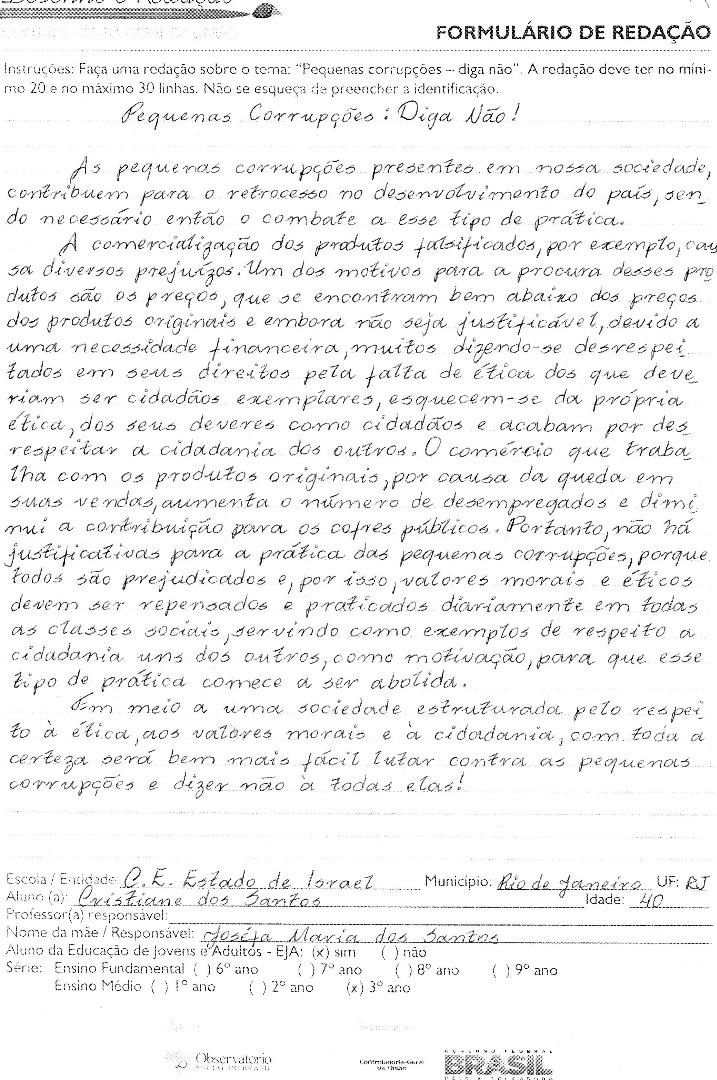 Desenho e Redação
CONTROLADORIA-GERAL DA UNIÃO
FORMULÁRIO DE REDAÇÃO
Instruções: Faça uma redação sobre o tema: “Pequenas corrupções – diga não”. A redação deve ter no míni-
mo 20 e no máximo 30 linhas. Não se esqueça de preencher a identificação.
Pequenas Corrupções: Diga Não!
As pequenas corrupções presentes em nossa sociedade,
contribuem para o retrocesso no desenvolvimento do país, sen
do necessário então o combate a esse tipo de prática.
A comercialização dos produtos falsificados, por exemplo, cau
sa diversos prejuízos. Um dos motivos para a procura desses pro
dutos são os preços, que se encontram bem abaixo dos preços
dos produtos originais e embora não seja justificável, devido a
uma necessidade financeira, muitos dizendo-se desrespei_
tados em seus direitos pela falta de ética dos que deve_
riam ser cidadãos exemplares, esquecem-se da própria
ética, dos seus deveres como cidadãos e acabam por des_
respeitar a cidadania dos outros. O comércio que traba_
lha com os produtos originais, por causa da queda em
suas vendas, aumenta o número de desempregados e dimi_
nui a contribuição para os cofres públicos. Portanto, não há
justificativas para a prática das pequenas corrupções, porque
todos são prejudicados e, por isso, valores morais e éticos
devem ser repensados e praticados diariamente em todas
as classes sociais, servindo como exemplos de respeito a
cidadania uns dos outros, como motivação, para que esse
tipo de prática comece a ser abolida.
Em meio a uma sociedade estruturada pelo respei_
to à ética, aos valores morais e à cidadania, com toda a
certeza será bem mais fácil lutar contra as pequenas
corrupções e dizer não à todas elas!
Escola / Entidade: C.E. Estado de Israel Município: Rio de Janeiro UF: RJ
Aluno (a): Cristiane dos Santos Idade: 40
Professor(a) responsável:
Nome da mãe / Responsável: Joséfa Maria dos Santos
Aluno da Educação de Jovens e Adultos - EJA: (x) sim ( ) não
Série: Ensino Fundamental ( ) 6º ano ( ) 7º ano ( ) 8º ano ( ) 9º ano
Ensino Médio ( ) 1º ano ( ) 2º ano (x) 3º ano
Observatório
SOCIAL DO BRASIL
Controladoria-Geral
da União
GOVERNO FEDERAL
BRASIL